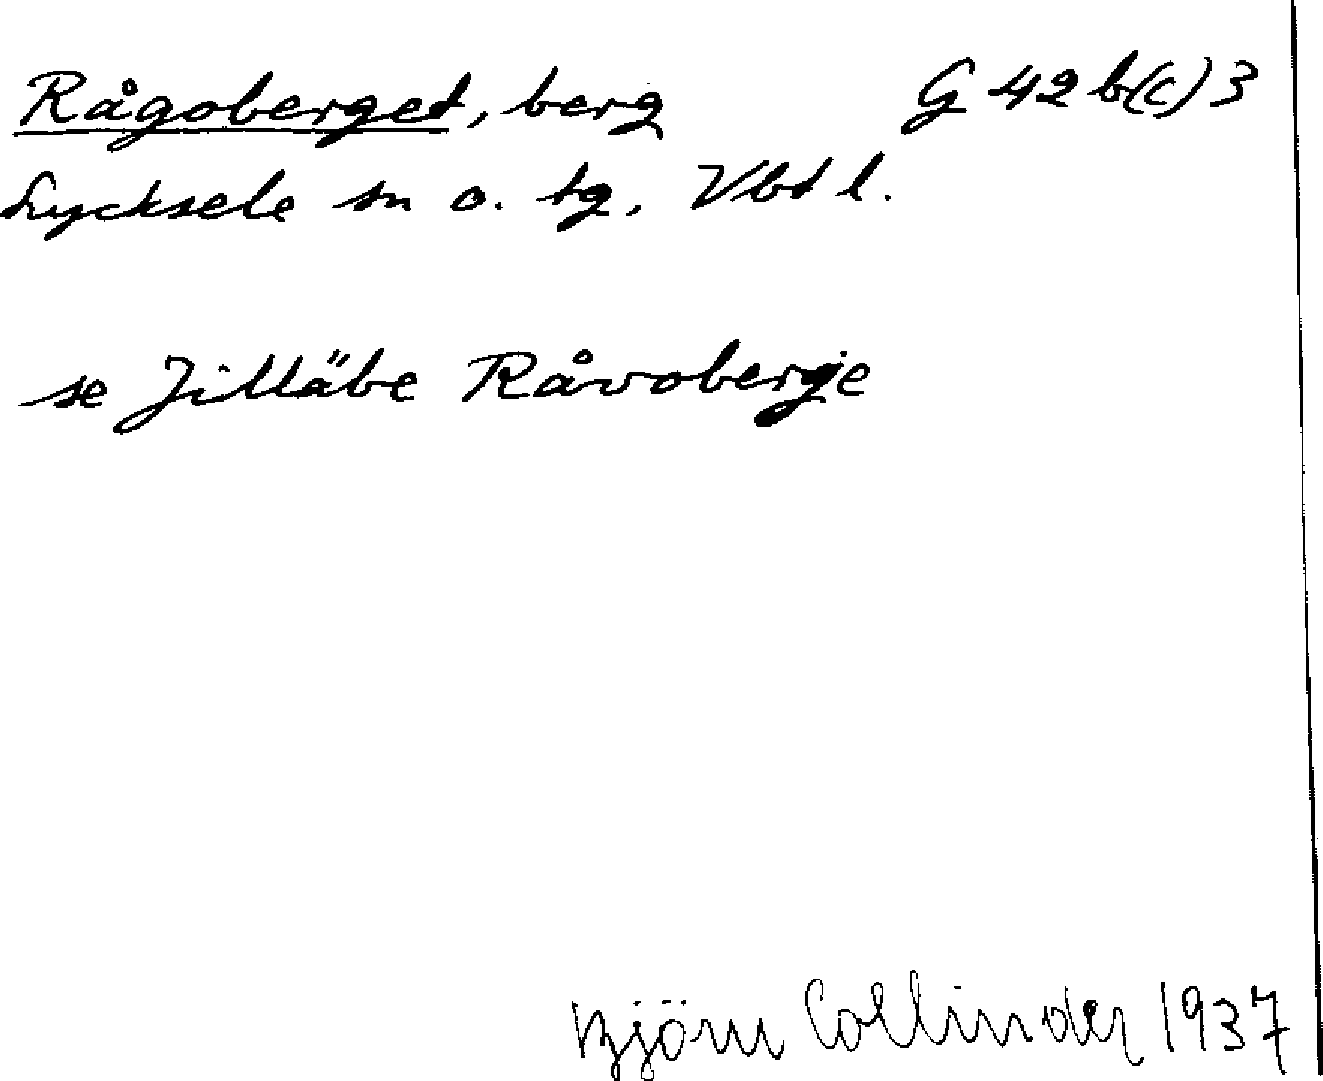 Rågoberget, berg G 42 b(c) 3
Lycksele sn o. tg, Vbt l.
se Jilläbe Råvoberge
Björn Collinder 1937